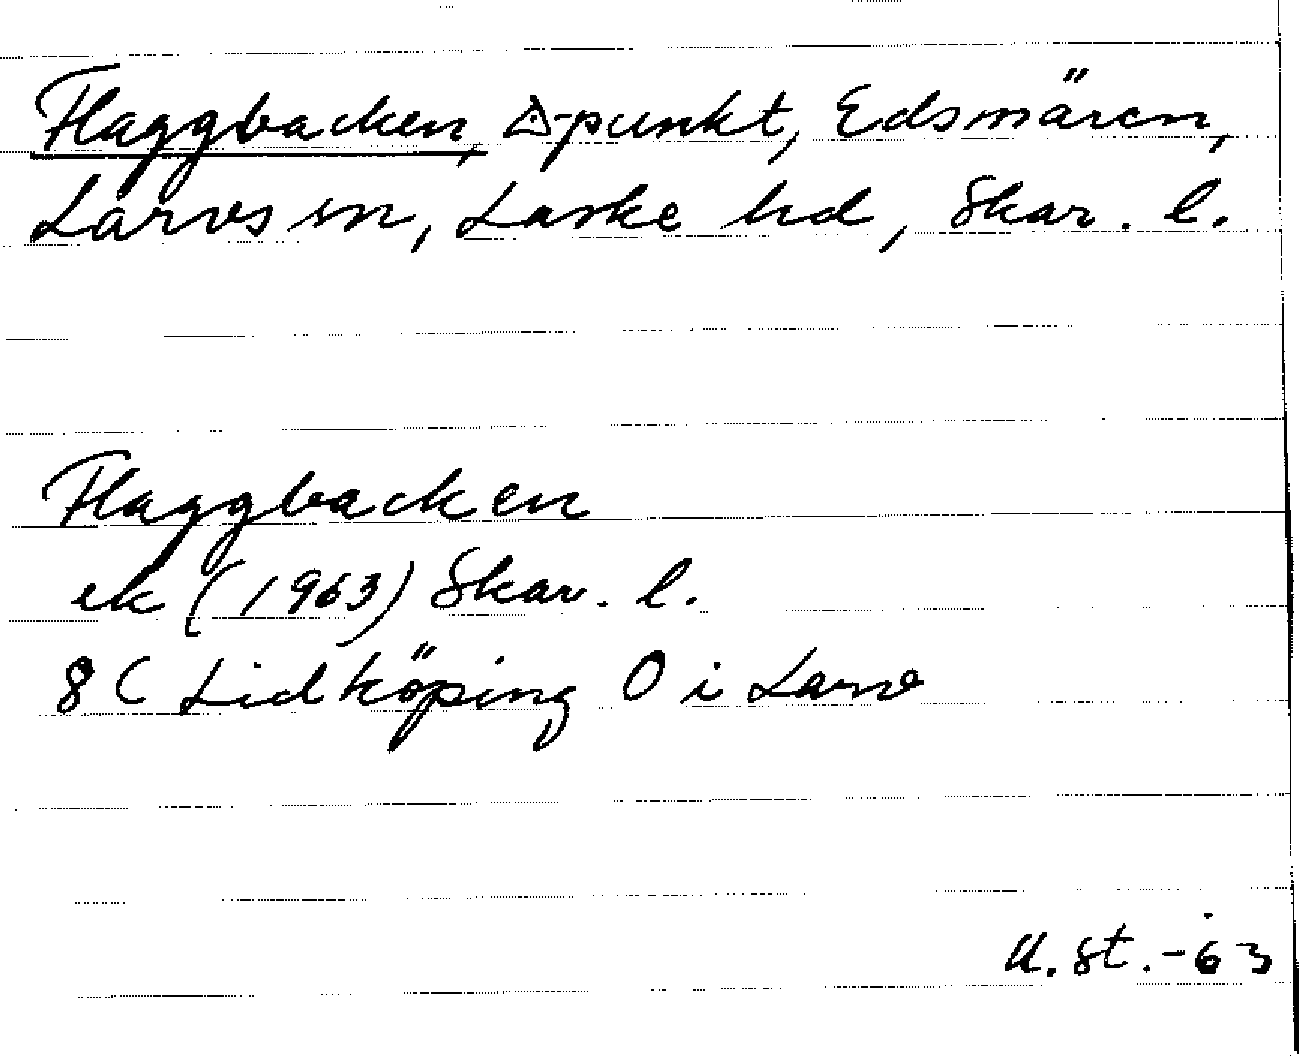 Flaggbacken, △-punkt, Edsmären,
Larvs sn, Laske hd, Skar. l.
Flaggbacken
ek (1963) Skar. l.
8C Lidköping O i Larv
U. St. -63